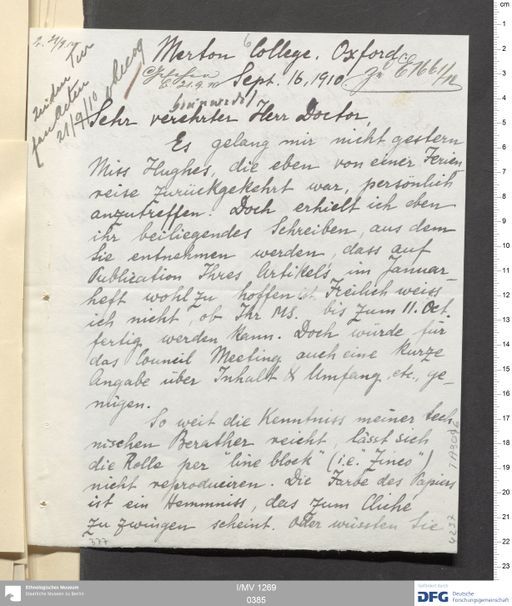 Merton College. Oxford
Sept. 16, 1910.
zu E 1661/10
21.9.10
zu den
21/9/10
Sehr verehrter Herr Doctor,
Es gelang mir nicht gestern
Miss Hughes, die eben von einer Ferien
reise zurückgekehrt war, persönlich
anzutreffen. Doch erhielt ich eben
ihr beiliegendes Schreiben, aus dem
Sie entnehmen werden, dass auf
Publication Ihres Artikels im Januar-
heft wohl zu hoffen ist. Freilich weiss
ich nicht, ob Ihr MS. bis zum 11. Oct.
fertig werden kann. Doch würde für
das Council Meeting auch eine kurze
Angabe über Inhalt & Umfang, etc., ge-
nügen.
So weit die Kenntniss meiner tech
nischen Berather reicht, lässt sich
die Rolle per "line block" (i.e. Zinco")
nicht reproduciren. Die Farbe des Papiers
ist ein Hemmniss, das zum Cliché
zu zwingen scheint. Oder wüssten Sie
377
Ethnologisches Museum
Staatliche Museen zu Berlin
I/MV 1269
0385
Gefördert durch
DFG Deutsche
Forschungsgemeinschaft
2
3
4
5
6
7
8
9
10
11
12
13
14
15
16
17
18
19
20
21
22
23